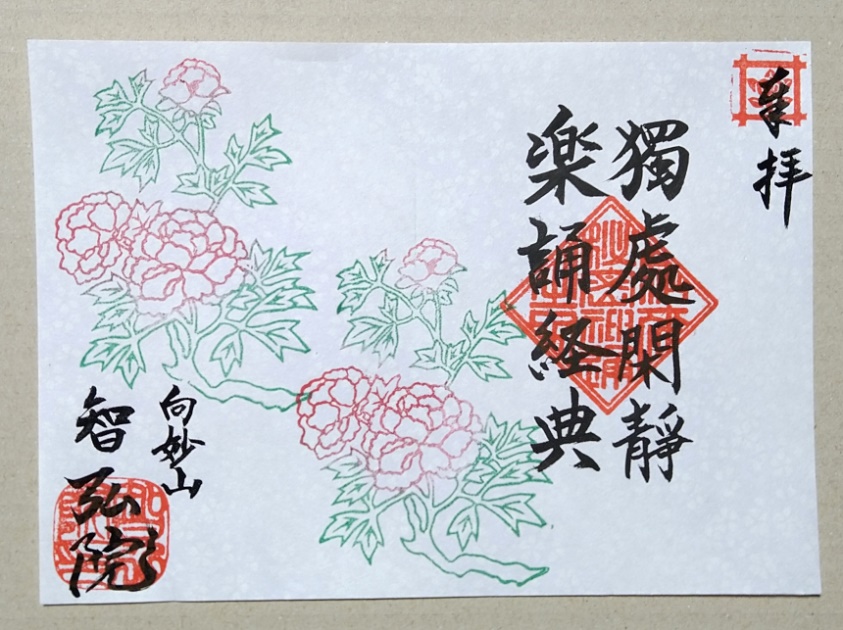 奉拝
獨處閑靜
楽誦経典
向妙山
智弘院